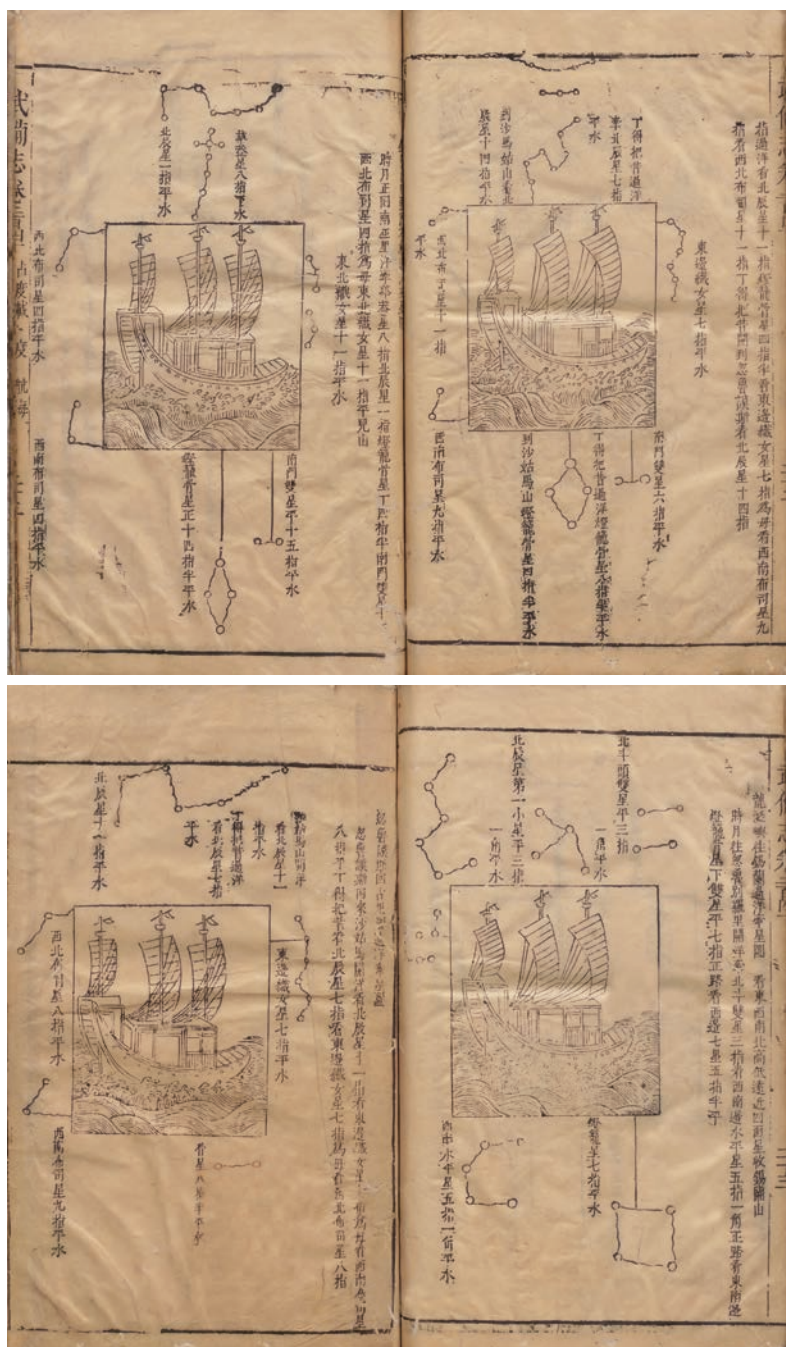 指過洋看北辰星十一指燈籠骨星四指半看東邊織女星七指爲母看西南布司星九
指看西北布司星十一指丁得把昔開到忽魯謨斯看北辰星十四指
丁得把昔過洋
牽北辰星七指
平水
到沙馬姑山看北
辰星十四指平水
東邊織女星七指平水
西北布司星十一指
平水
南門雙星六指平水
丁得把昔過洋燈籠骨星八指半平水
到沙姑馬山燈籠骨星四指半平水
西南布司星九指平水
時月正回南巫里洋牽華蓋星八指北辰星一指燈籠骨星十四指半南門雙星十
西北布司星四指爲母東北織女星十一指平兒山
東北織女星十一指平水
華蓋星八指平水
北辰星一指平水
西北布司星四指平水
南門雙星平十五指平水
燈籠骨星正十四指半平水
西南布司星四指平水
武備志卷二百四十 占度載 度 航海
龍涎嶼往錫蘭過洋牽星圖 看東西南北高低遠近四面星收錫蘭山
時月往忽魯別羅里開洋牽北斗雙星三指看西南邊水平星五指一角正路看東南邊
燈籠骨星下雙星平七指正路看西邊七星五指半平
北斗頭雙星平三指
一角平水
北辰星第一小星平三指
一角平水
燈籠星七指平水
西南水平星五指一角平水
忽魯謨斯回古里國過洋牽星圖
忽魯謨斯回來沙姑馬開洋看北辰星十一指看東邊織女星七指爲母看西南布司星
八指平丁得把昔看北辰星七指看東邊織女星七指爲母看西北布司星八指
沙姑馬山開洋
看北辰星十一
指平水
丁得把昔過洋
看北辰星七指
平水
北辰星十一指平水
東邊織女星七指平水
西北布司星八指平水
骨星八指半平水
西南布司星九指平水